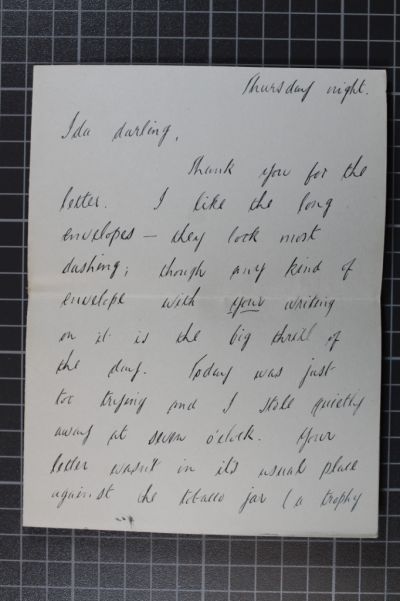 Thursday night.
Ida darling,
Thank you for the
letter. I like the long
envelopes — they look most
dashing; though any kind of
envelope with your writing
on it is the big thrill of
the day. Today was just
too trying and I stole quietly
away at seven o'clock. Your
letter wasn't in its usual place
against the tobacco jar (a trophy